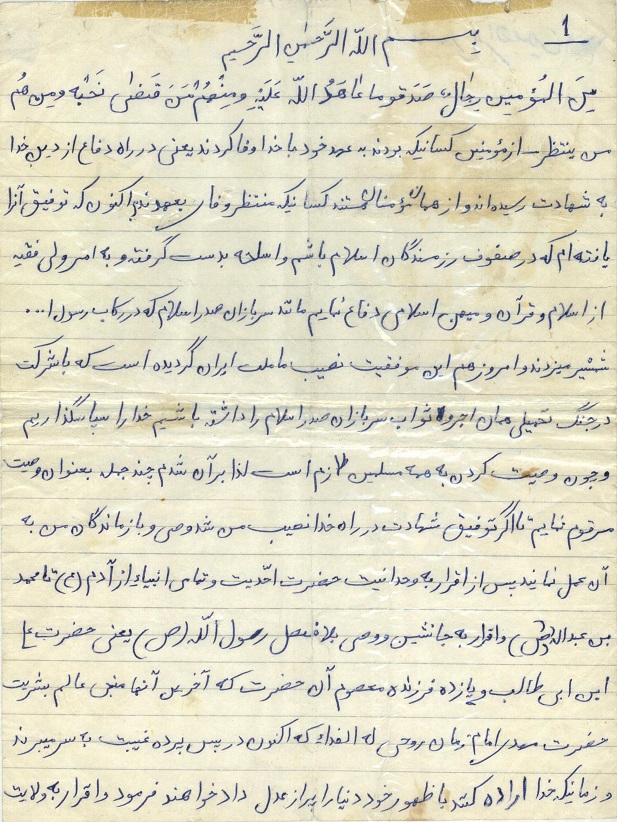 1
بسم اللّه الرَّحمٰن الرَّحیم
مِنَ المُؤمِنینَ رِجالٌ صَدَقوا ما عاهَدُ اللّه عَلَیْهِ وَمِنْهُمْ مَنْ قَضیٰ نَحْبَه وَمِن هُم
من ینتظر از مؤمنین کسانیکه بودند به عهد خود با خدا وفا کردند یعنی در راه دفاع از دین خدا
به شهادت رسیده اند و از همان مؤمنان هستند کسانیکه منتظر وفای بعهدند اکنون که توفیق آنرا
یافته ام که در صفوف رزمندگان اسلام باشم و اسلحه بدست گرفته و به امر ولی فقیه
از اسلام و قرآن و میهن اسلامی دفاع نمایم مانند سربازان صدر اسلام که در رکاب رسول ا...
شمشیر میزدند و امروز هم این موفقیت نصیب ما ملت ایران گردیده است که با شرکت
در جنگ تحمیلی همان اجر و ثواب سربازان صدر اسلام را داشته باشیم خدا را سپاسگذاریم
و چون وصیت کردن به همه مسلمین لازم است لذا بر آن شدم چند جمله بعنوان وصیت
مرقوم نمایم تا اگر توفیق شهادت در راه خدا نصیب من شد وصی و بازماندگان من به
آن عمل نمایند پس از اقرار به وحدانیت حضرت احدیت و تمامی انبیاء از آدم (ع) تا محمد
بن عبداله (ص) و اقرار به جانشین و وصی بلافصل رسول اللّه (ص) یعنی حضرت علی
ابن ابی طالب و یازده فرزنده معصوم آن حضرت که آخرین آنها منجی عالم بشریت
حضرت مهدی امام زمان روحی له الفداء که اکنون در پس پرده غیبت به سر میبرند
و زمانیکه خدا اراده کند با ظهور خود دنیا را پر از عدل و داد خواهند فرمود و اقرار به ولایت